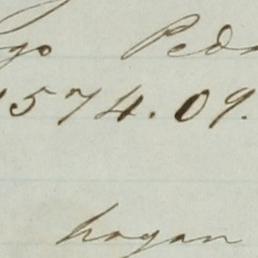 go Ped
1574.09.
hogan